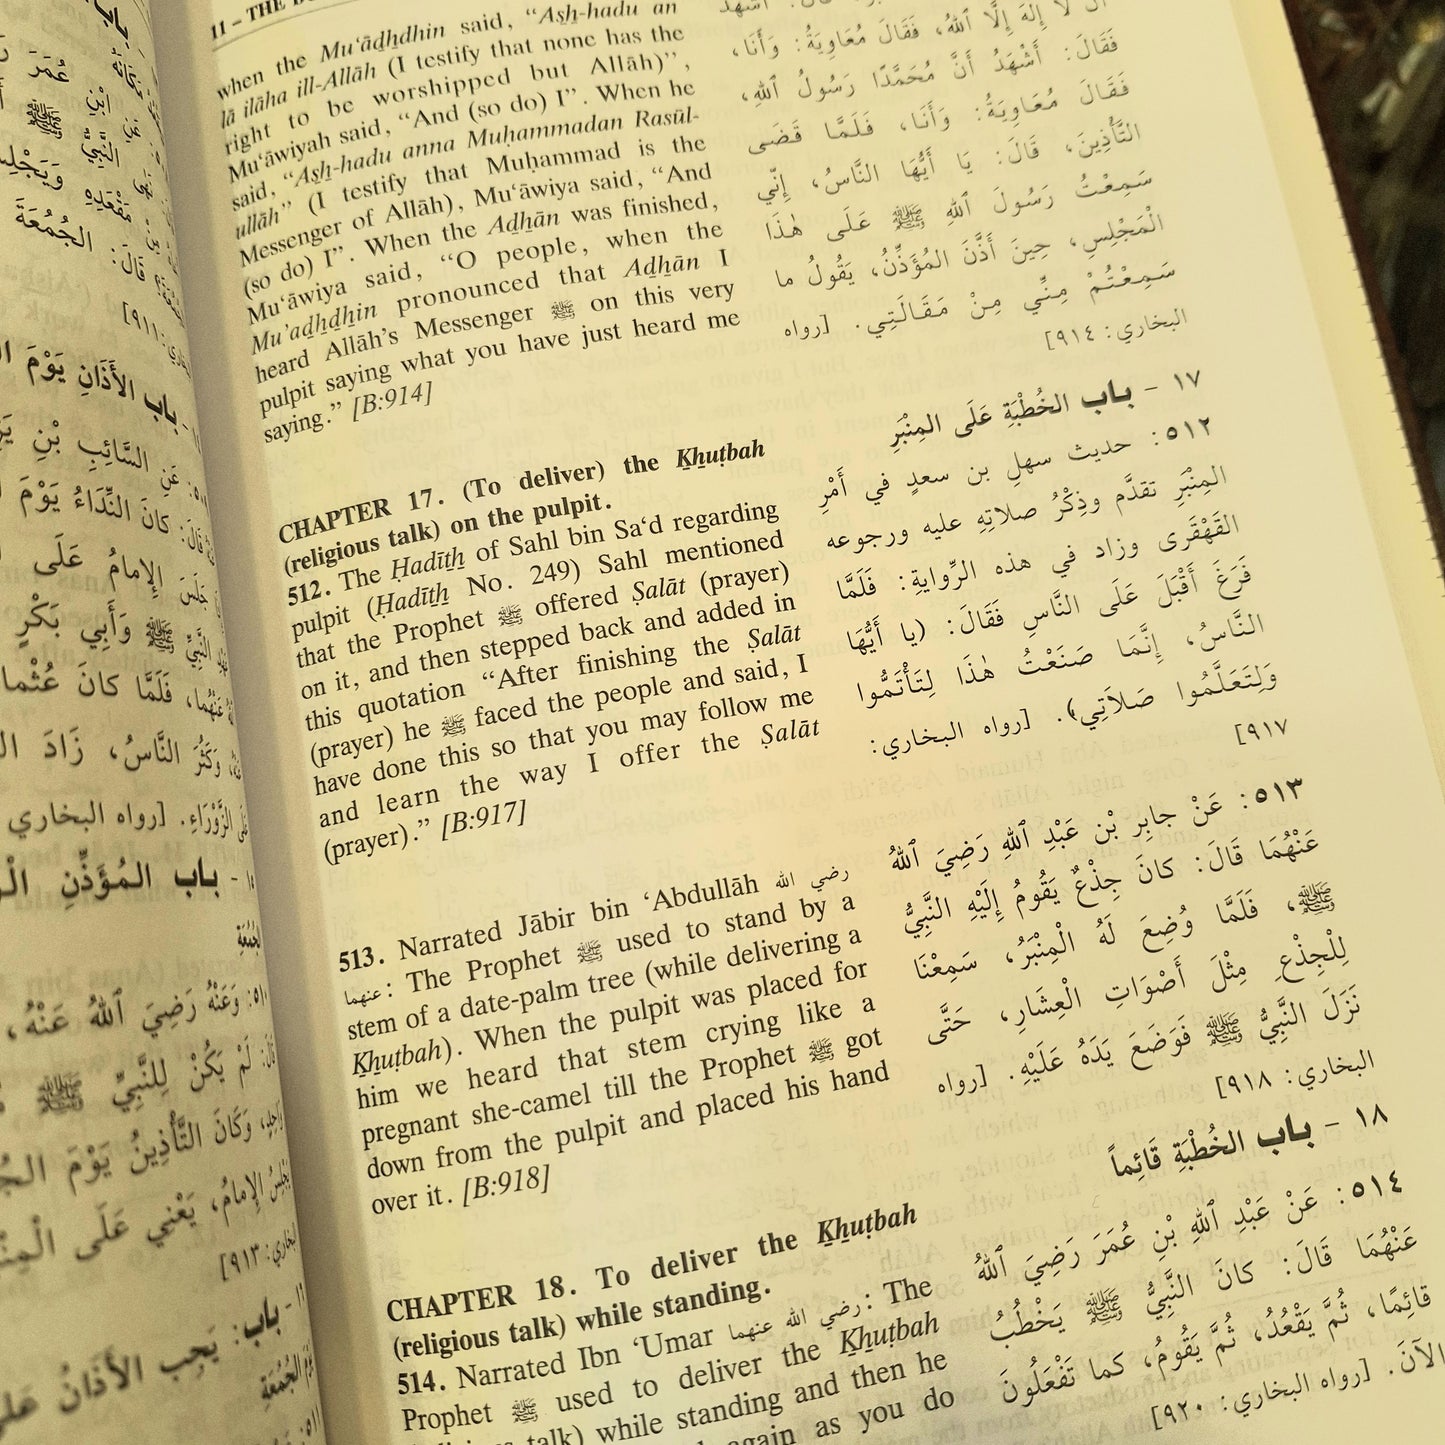 11 – THE
when the Mu‘āḏẖdhin said, “Asẖ-hadu an
lā ilāha ill-Allāh (I testify that none has the
right to be worshipped but Allāh)”,
Mu‘āwiyah said, “And (so do) I”. When he
said, “Asẖ-hadu anna Muḥammadan Rasūl-
ullāh” (I testify that Muḥammad is the
Messenger of Allāh), Mu‘āwiya said, “And
(so do) I”. When the Aḏẖān was finished,
Mu‘āwiya said, “O people, when the
Mu’aḏẖḏẖin pronounced that Aḏẖān I
heard Allāh’s Messenger ﷺ on this very
pulpit saying what you have just heard me
saying.” [B:914]
CHAPTER 17. (To deliver) the Ḵẖuṭbah
(religious talk) on the pulpit.
512. The Ḥadīṯẖ of Sahl bin Sa‘d regarding
pulpit (Ḥadīṯẖ No. 249) Sahl mentioned
that the Prophet ﷺ offered Ṣalāt (prayer)
on it, and then stepped back and added in
this quotation “After finishing the Ṣalāt
(prayer) he ﷺ faced the people and said, I
have done this so that you may follow me
and learn the way I offer the Ṣalāt
(prayer).” [B:917]
513. Narrated Jābir bin ‘Abdullāh رضي الله
عنهما: The Prophet ﷺ used to stand by a
stem of a date-palm tree (while delivering a
Ḵẖuṭbah). When the pulpit was placed for
him we heard that stem crying like a
pregnant she-camel till the Prophet ﷺ got
down from the pulpit and placed his hand
over it. [B:918]
CHAPTER 18. To deliver the Ḵẖuṭbah
(religious talk) while standing.
514. Narrated Ibn ‘Umar رضي الله عنهما: The
Prophet ﷺ used to deliver the Ḵẖuṭbah
talk) while standing and then he
again as you do
أَنْ لَا إِلٰهَ إِلَّا ٱللهُ، فَقَالَ مُعَاوِيَةُ: وَأَنَا،
فَقَالَ: أَشْهَدُ أَنَّ مُحَمَّدًا رَسُولُ ٱللهِ،
فَقَالَ مُعَاوِيَةُ: وَأَنَا، فَلَمَّا قَضَى
التَّأْذِينَ، قَالَ: يَا أَيُّهَا النَّاسُ، إِنِّي
سَمِعْتُ رَسُولَ ٱللهِ ﷺ عَلَى هٰذَا
الْمَجْلِسِ، حِينَ أَذَّنَ المُؤَذِّنُ، يَقُولُ ما
سَمِعْتُمْ مِنِّي مِنْ مَقَالَتِي. [رواه
البخاري: ٩١٤]
١٧ - باب الخُطْبَةِ عَلَى المِنْبَرِ
٥١٢: حديث سهلِ بن سعدٍ في أَمْرِ
المِنْبَرِ تقدَّم وذِكْرُ صلاتِهِ عليه ورجوعه
القَهْقَرى وزاد في هذه الرِّوايةِ: فَلَمَّا
فَرَغَ أَقْبَلَ عَلَى النَّاسِ فَقَالَ: (يا أَيُّهَا
النَّاسُ، إِنَّمَا صَنَعْتُ هٰذَا لِتَأْتَمُّوا
وَلِتَعَلَّمُوا صَلَاتِي). [رواه البخاري:
٩١٧]
٥١٣: عَنْ جابِرِ بْنِ عَبْدِ ٱللهِ رَضِيَ ٱللهُ
عَنْهُمَا قَالَ: كانَ جِذْعٌ يَقُومُ إِلَيْهِ النَّبِيُّ
ﷺ، فَلَمَّا وُضِعَ لَهُ الْمِنْبَرُ، سَمِعْنَا
لِلْجِذْعِ مِثْلَ أَصْوَاتِ الْعِشَارِ، حَتَّى
نَزَلَ النَّبِيُّ ﷺ فَوَضَعَ يَدَهُ عَلَيْهِ. [رواه
البخاري: ٩١٨]
١٨ - باب الخُطْبَةِ قَائِماً
٥١٤: عَنْ عَبْدِ ٱللهِ بْنِ عُمَرَ رَضِيَ ٱللهُ
عَنْهُمَا قَالَ: كانَ النَّبِيُّ ﷺ يَخْطُبُ
قائِمًا، ثُمَّ يَقْعُدُ، ثُمَّ يَقُومُ، كما تَفْعَلُونَ
الآنَ. [رواه البخاري: ٩٢٠]
عُمَرَ
النَّبِيُّ ﷺ
مَقْعَدِهِ
قَالَ: الجُمُعَةَ
٩١١]
باب الأَذَانِ يَوْمَ
عَنِ السَّائِبِ بْنِ
قَالَ: كانَ النِّدَاءُ يَوْمَ
جَلَسَ الإِمامُ عَلَى
النَّبِيِّ ﷺ وَأَبِي بَكْرٍ
فَلَمَّا كانَ
وَكَثُرَ النَّاسُ، زَادَ
الزَّوْرَاءِ. [رواه البخاري
باب المُؤَذِّنِ
وَعَنْهُ رَضِيَ ٱللهُ عَنْهُ،
لَمْ يَكُنْ لِلنَّبِيِّ ﷺ
وَكَانَ التَّأْذِينُ يَوْمَ
الإِمامُ، يَعْنِي عَلَى
٩١٣]
باب: يَجِب الأَذَانُ